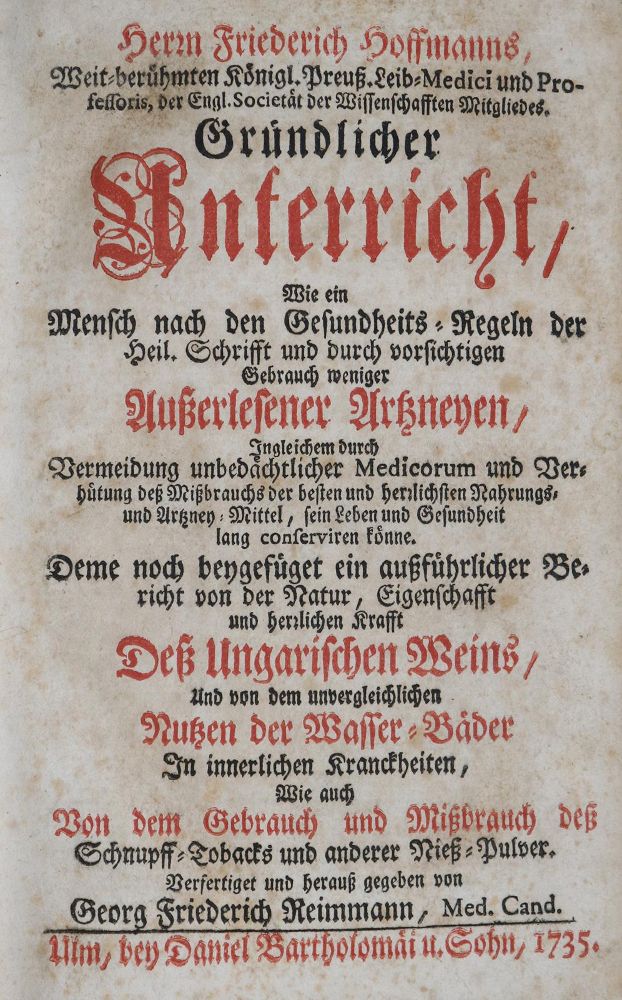 Herrn Friederich Hoffmanns,
Weit-berühmten Königl. Preuß. Leib-Medici und Pro-
fessoris, der Engl. Societät der Wissenschafften Mitgliedes.
Gründlicher
Unterricht,
Wie ein
Mensch nach den Gesundheits-Regeln der
Heil. Schrifft und durch vorsichtigen
Gebrauch weniger
Außerlesener Artzneyen,
Ingleichem durch
Vermeidung unbedächtlicher Medicorum und Ver-
hütung deß Mißbrauchs der besten und herrlichsten Nahrungs-
und Artzney-Mittel, sein Leben und Gesundheit
lang conserviren könne.
Deme noch beygefüget ein außführlicher Be-
richt von der Natur, Eigenschafft
und herrlichen Krafft
Deß Ungarischen Weins,
Und von dem unvergleichlichen
Nutzen der Wasser-Bäder
In innerlichen Kranckheiten,
Wie auch
Von dem Gebrauch und Mißbrauch deß
Schnupff-Tobacks und anderer Nieß-Pulver.
Verfertiget und herauß gegeben von
Georg Friederich Reimmann, Med. Cand.
Ulm, bey Daniel Bartholomäi u. Sohn, 1735.